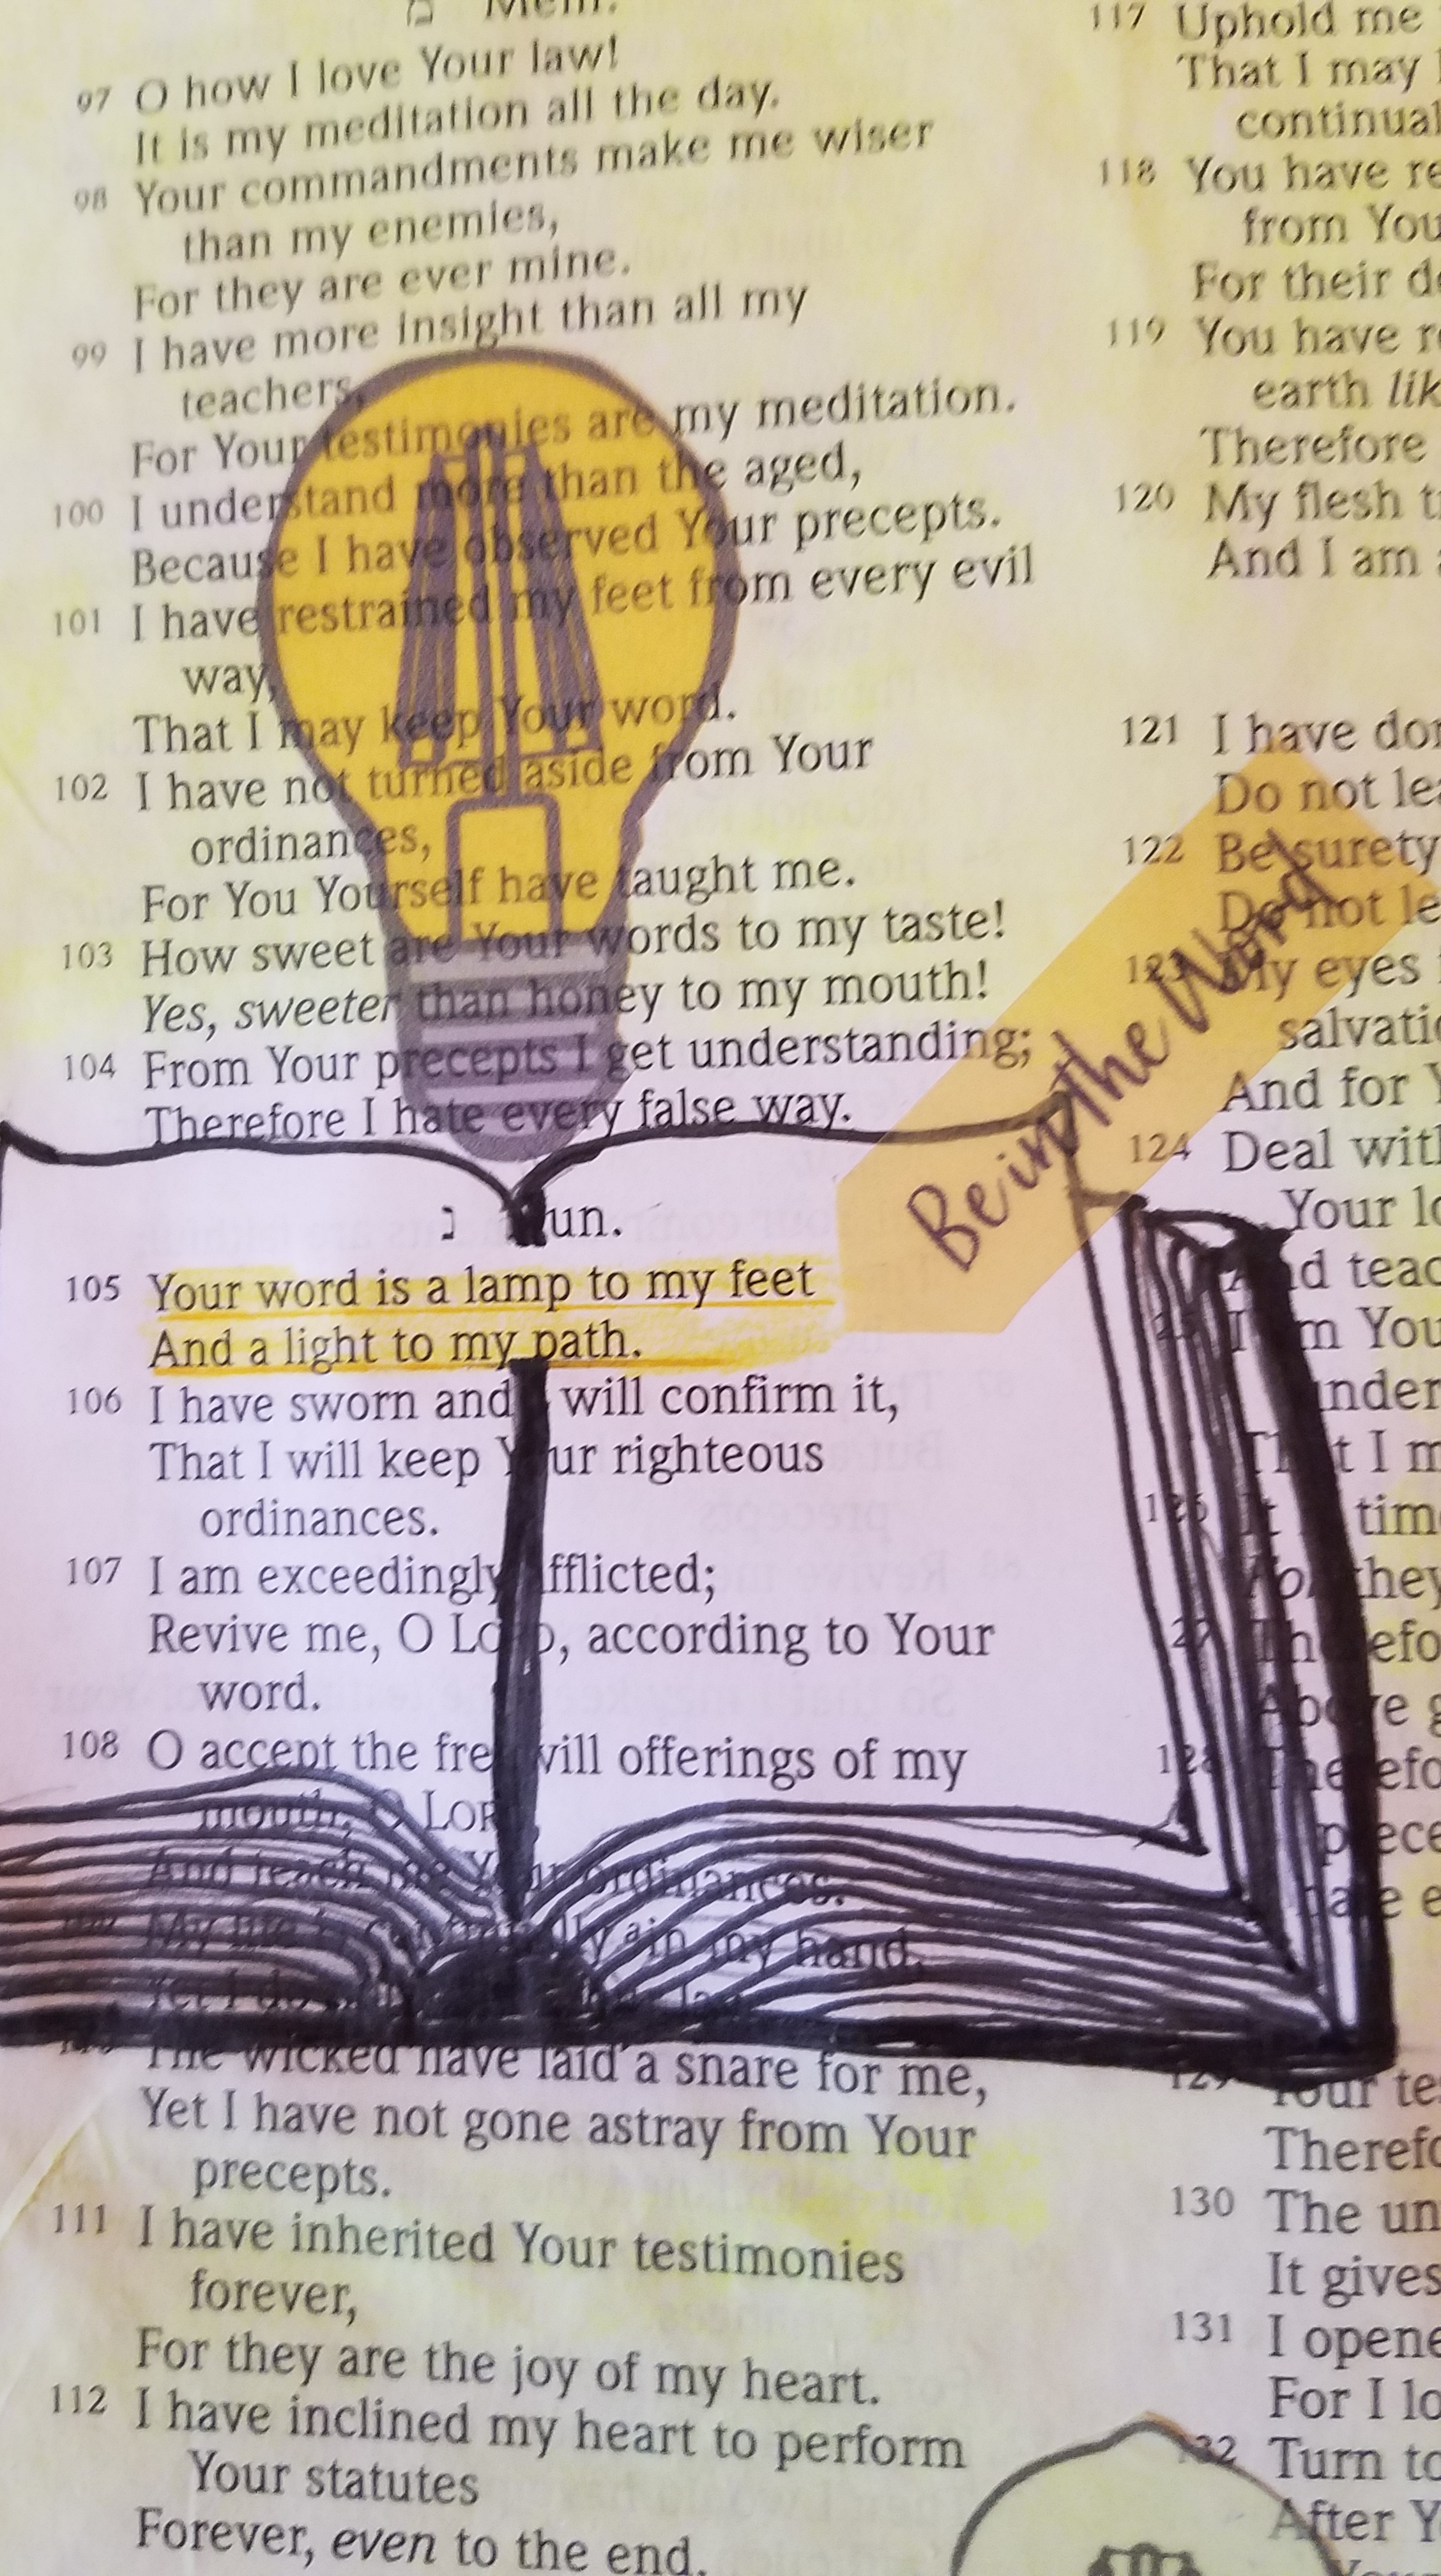 מ Mem.
97 O how I love Your law!
It is my meditation all the day.
98 Your commandments make me wiser
than my enemies,
For they are ever mine.
99 I have more insight than all my
teachers,
For Your testimonies are my meditation.
100 I understand more than the aged,
Because I have observed Your precepts.
101 I have restrained my feet from every evil
way,
That I may keep Your word.
102 I have not turned aside from Your
ordinances,
For You Yourself have taught me.
103 How sweet are Your words to my taste!
Yes, sweeter than honey to my mouth!
104 From Your precepts I get understanding;
Therefore I hate every false way.
נ Nun.
105 Your word is a lamp to my feet
And a light to my path.
106 I have sworn and I will confirm it,
That I will keep Your righteous
ordinances.
107 I am exceedingly afflicted;
Revive me, O LORD, according to Your
word.
108 O accept the freewill offerings of my
mouth, O LORD,
And teach me Your ordinances.
109 My life is continually in my hand,
Yet I do
110 The wicked have laid a snare for me,
Yet I have not gone astray from Your
precepts.
111 I have inherited Your testimonies
forever,
For they are the joy of my heart.
112 I have inclined my heart to perform
Your statutes
Forever, even to the end.
Be in the Word
117 Uphold me
That I may
118 You have
from You
For their
119 You have
earth
Therefore
120 My flesh
And I am
121 I have
Do not
122 Be surety
Do not
123 My eyes
And for
124 Deal
Your
And
125 I am You
That I
126 It is time
For they
127
Above
128
129 Your
130 The
It gives
131 I
For I
132 Turn
After